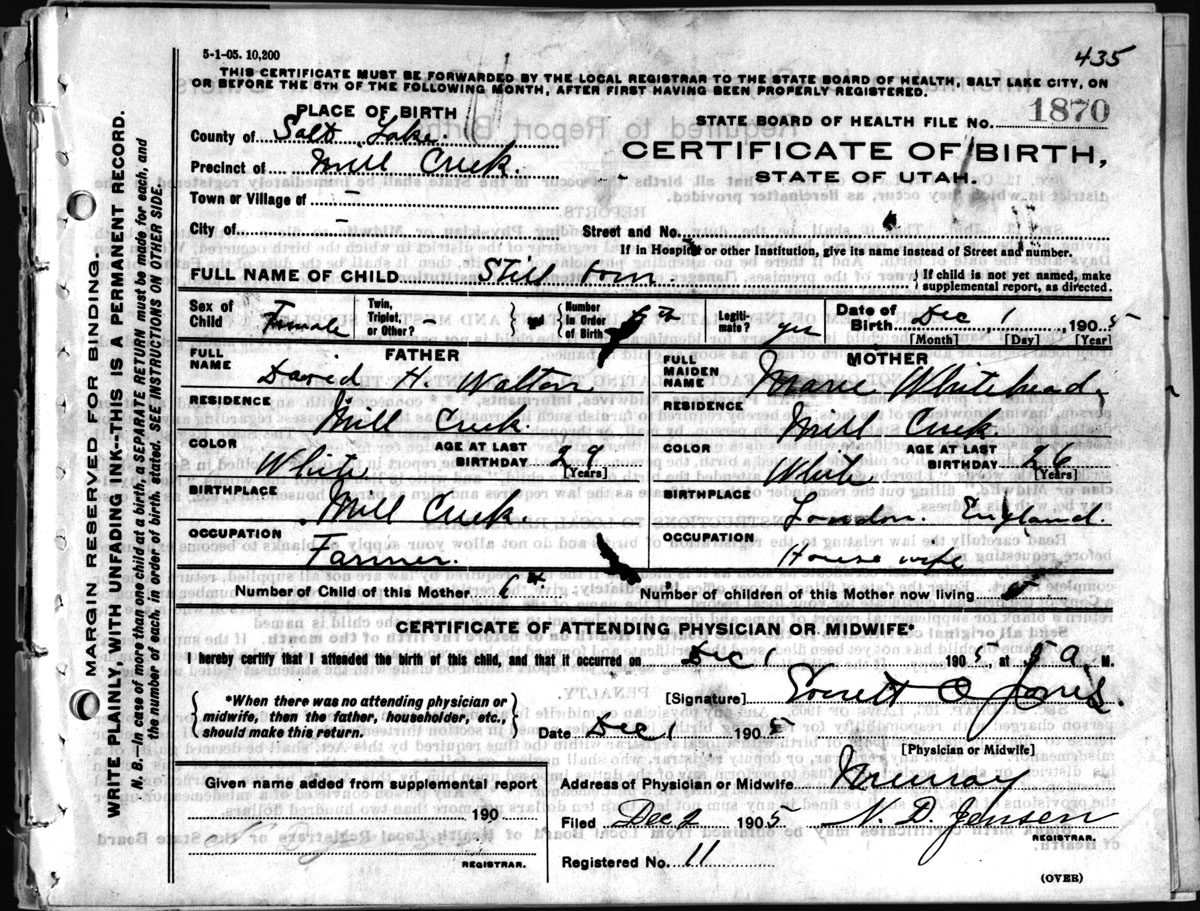 5-1-05. 10,200
435
THIS CERTIFICATE MUST BE FORWARDED BY THE LOCAL REGISTRAR TO THE STATE BOARD OF HEALTH, SALT LAKE CITY, ON
OR BEFORE THE 5TH OF THE FOLLOWING MONTH, AFTER FIRST HAVING BEEN PROPERLY REGISTERED.
PLACE OF BIRTH
STATE BOARD OF HEALTH FILE No. 1870
County of Salt Lake
CERTIFICATE OF BIRTH,
Precinct of Mill Creek.
STATE OF UTAH.
Town or Village of -
City of - Street and No.
If in Hospital or other Institution, give its name instead of Street and number.
FULL NAME OF CHILD Still born { If child is not yet named, make
supplemental report, as directed.
Sex of Child Female
Twin, Triplet, or Other? - } and { Number in Order of Birth 6th
Legitimate? yes
Date of Birth Dec 1 1905
[Month] [Day] [Year]
FATHER
FULL NAME David H. Walton
RESIDENCE Mill Creek.
COLOR White AGE AT LAST BIRTHDAY 29 [Years]
BIRTHPLACE Mill Creek.
OCCUPATION Farmer.
MOTHER
FULL MAIDEN NAME Marie Whitehead
RESIDENCE Mill Creek.
COLOR White AGE AT LAST BIRTHDAY 26 [Years]
BIRTHPLACE London. England.
OCCUPATION House wife
Number of Child of this Mother 6th Number of children of this Mother now living 5
CERTIFICATE OF ATTENDING PHYSICIAN OR MIDWIFE*
I hereby certify that I attended the birth of this child, and that it occurred on Dec 1 1905, at 9 A. M.
{ *When there was no attending physician or
midwife, then the father, householder, etc.,
should make this return. }
[Signature] Everett O Jones
Date Dec 1 1905
[Physician or Midwife]
Given name added from supplemental report
190
REGISTRAR.
Address of Physician or Midwife Murray
Filed Dec 2 1905 N. D. Jensen
REGISTRAR.
Registered No. 11
(OVER)
MARGIN RESERVED FOR BINDING.
WRITE PLAINLY, WITH UNFADING INK--THIS IS A PERMANENT RECORD.
N. B.--In case of more than one child at a birth, a SEPARATE RETURN must be made for each, and
the number of each, in order of birth, stated. SEE INSTRUCTIONS ON OTHER SIDE.